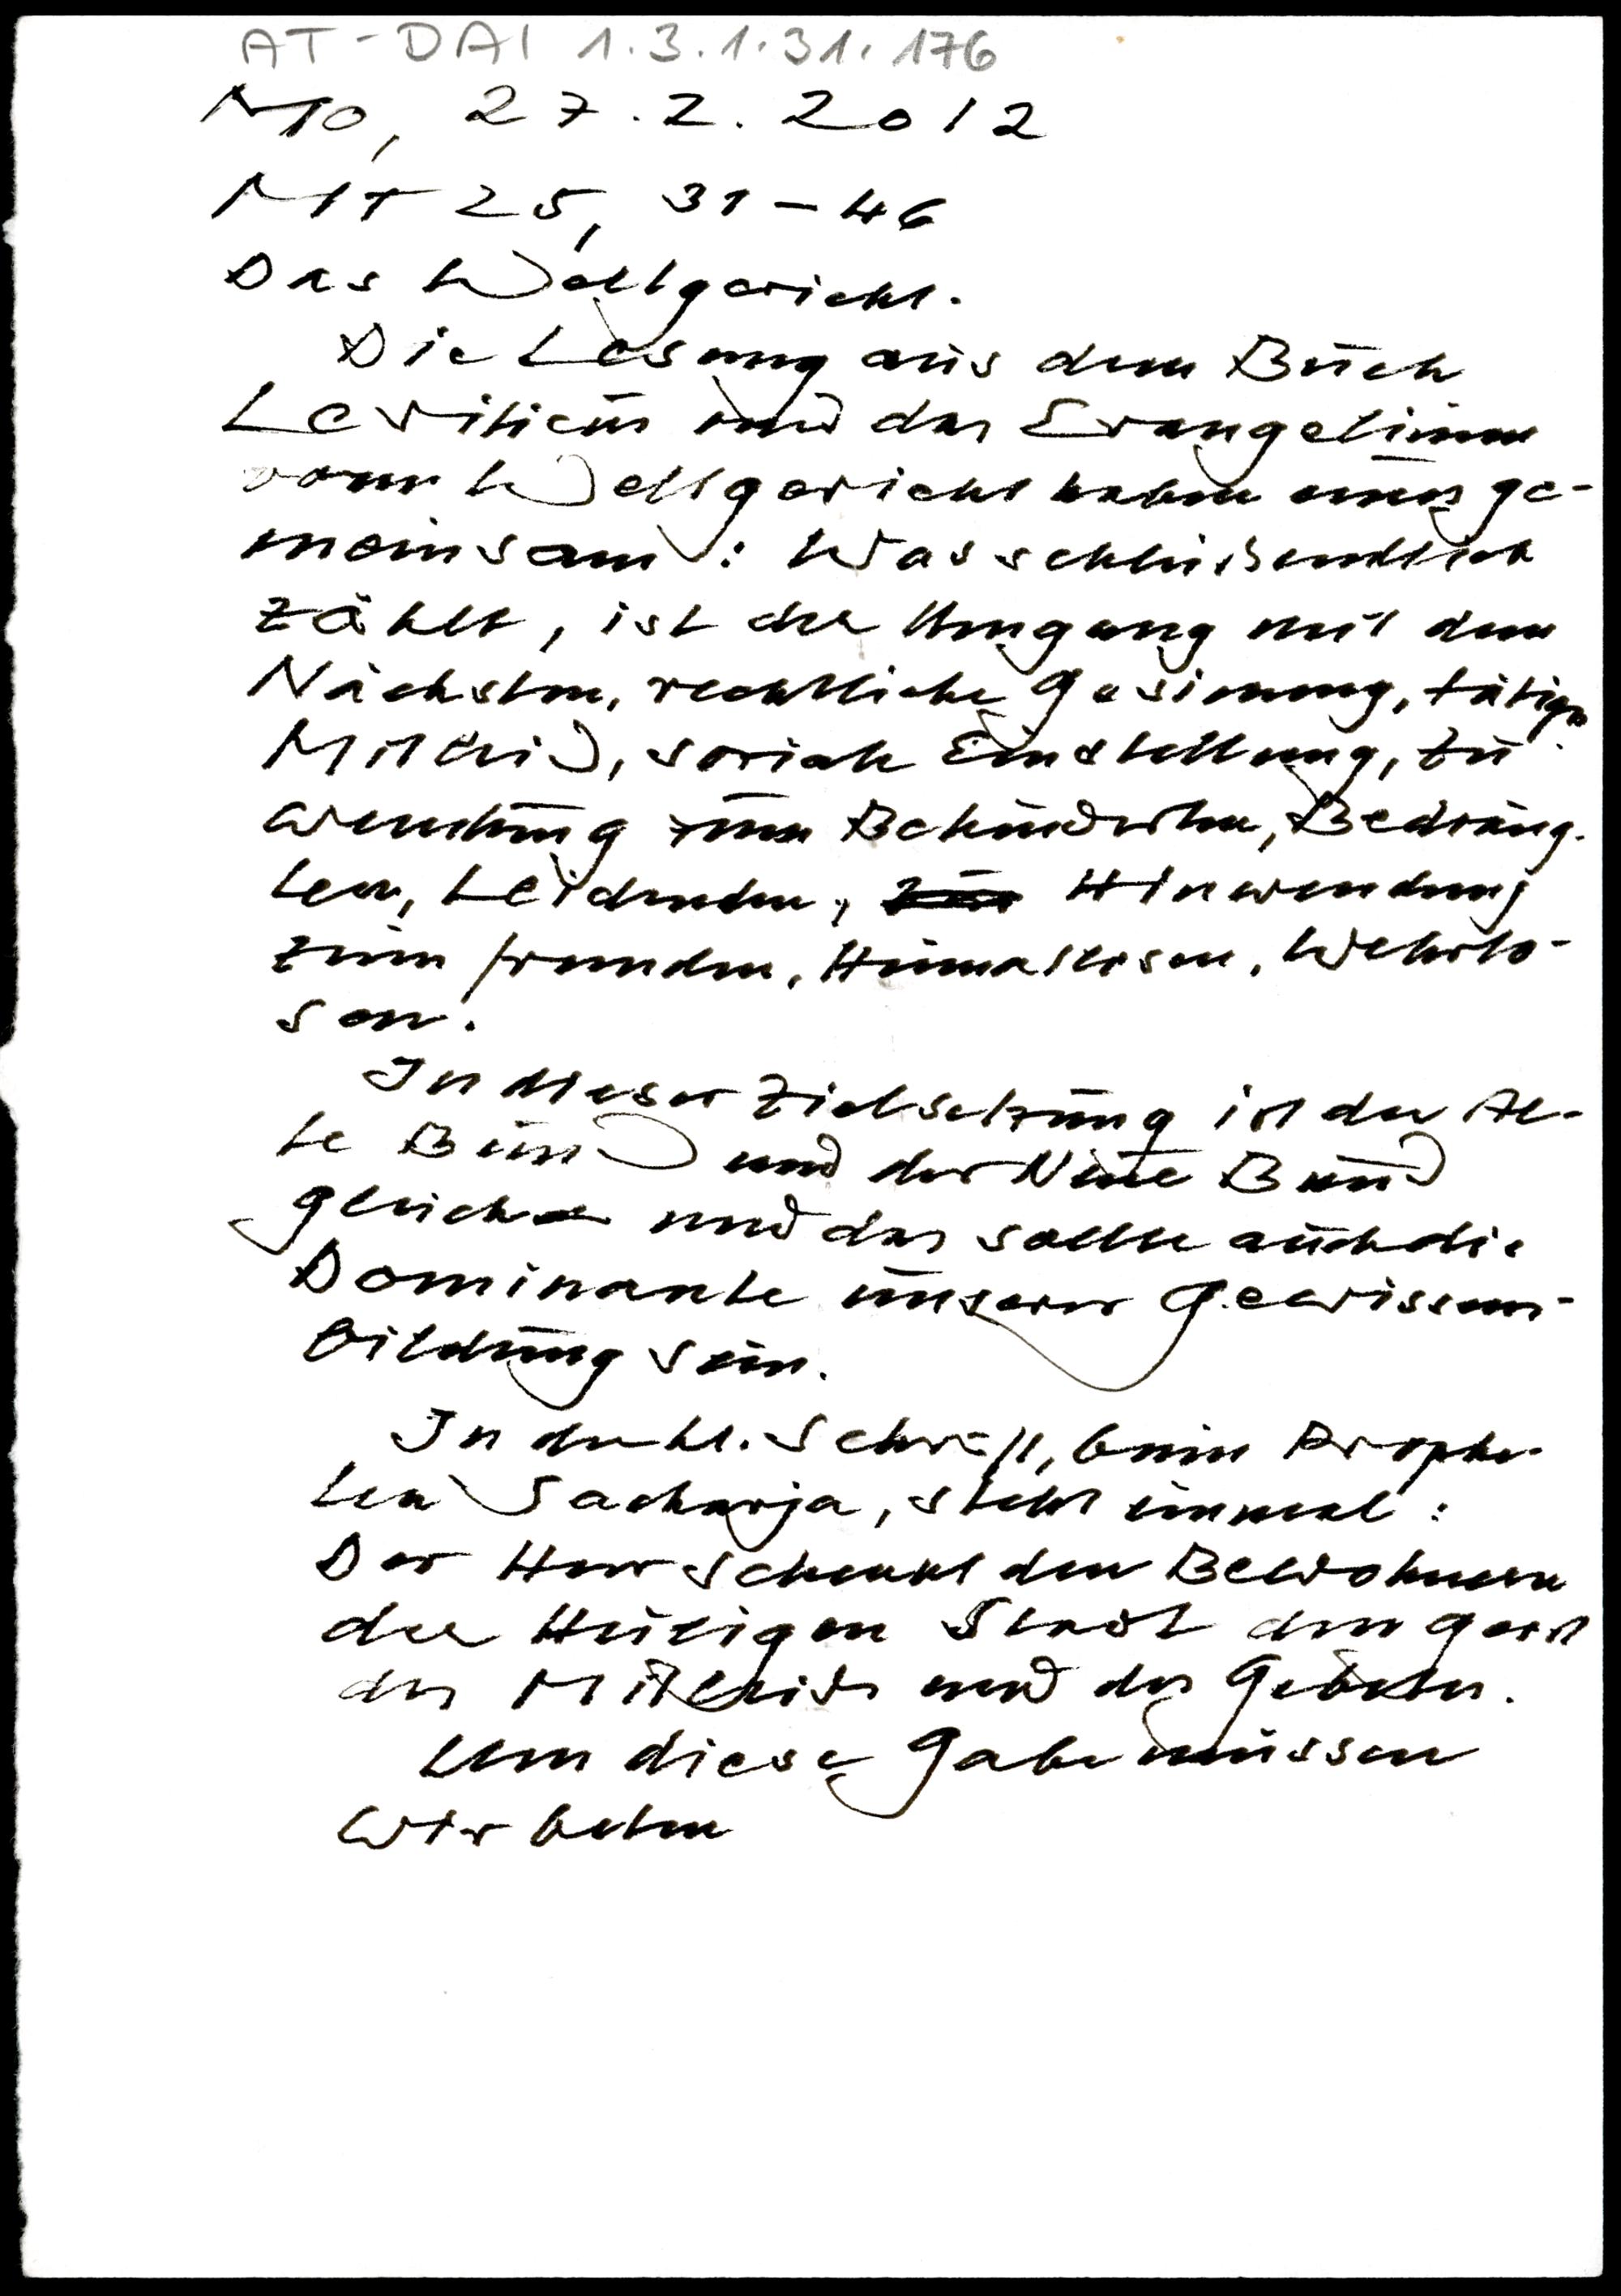 AT-DAI 1.3.1.31.176
Mo, 27.2.2012
Mt 25, 31-46
Das Weltgericht.
Die Lesung aus dem Buch
Leviticus und das Evangelium
vom Weltgericht haben eines ge-
meinsam: Was schließendlich
zählt, ist der Umgang mit dem
Nächsten, rechtliche Gesinnung, tätiges
Mitleid, soziale Einstellung, Zu
wendung zum Behinderten, Bedräng-
ten, Leidenden, Hinwendung
zum Fremden, Heimatlosen, Wehrlo-
sen.
In dieser Zielsetzung ist der Al-
te Bund und der Neue Bund
gleich und das sollte auch die
Dominante unserer Gewissens-
bildung sein.
In der hl. Schrift, beim Prophe-
ten Sacharja, steht einmal:
Der Herr schenkt den Bewohnern
der Heiligen Stadt den Geist
des Mitleids und des Gebetes.
Um diese Gabe müssen
wir beten